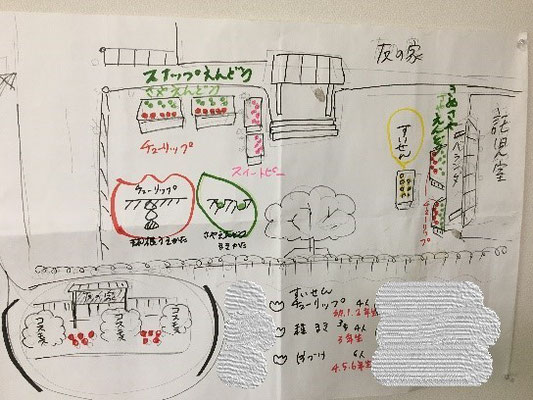 友の家
スナップえんどう
さやえんどう
チューリップ
スイートピー
すいせん
きぬさや
さやえんどう
ベランダ
託児室
チューリップ
チューリップ
球根うえかた
さやえんどう
うえかた
友の家
コスモス
コスモス
コスモス
すいせん
チューリップ 4人
幼.1.2年生
種まき 4人
3年生
6人
4.5.6年生